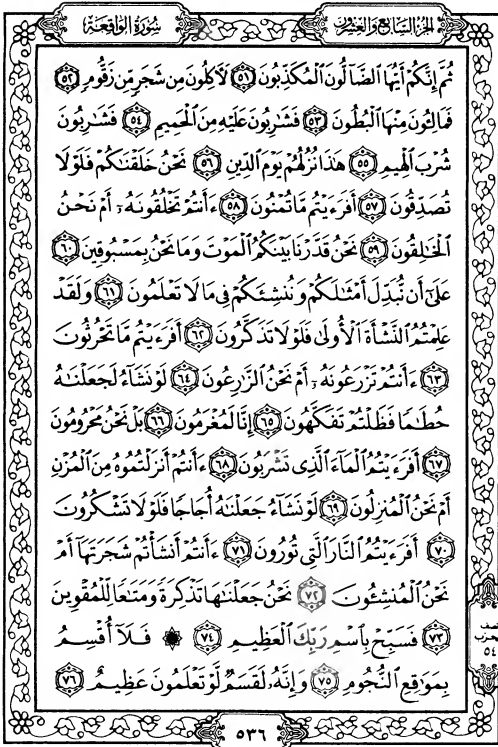 سُورَةُ الوَاقِعَةِ
الجُزْءُ السَّابِعُ وَالعِشْرُونَ
ثُمَّ إِنَّكُمْ أَيُّهَا ٱلضَّآلُّونَ ٱلْمُكَذِّبُونَ ٥١ لَأَكِلُونَ مِن شَجَرٍ مِّن زَقُّومٍ ٥٢
فَمَالِـُٔونَ مِنْهَا ٱلْبُطُونَ ٥٣ فَشَٰرِبُونَ عَلَيْهِ مِنَ ٱلْحَمِيمِ ٥٤ فَشَٰرِبُونَ
شُرْبَ ٱلْهِيمِ ٥٥ هَٰذَا نُزُلُهُمْ يَوْمَ ٱلدِّينِ ٥٦ نَحْنُ خَلَقْنَٰكُمْ فَلَوْلَا
تُصَدِّقُونَ ٥٧ أَفَرَءَيْتُم مَّا تُمْنُونَ ٥٨ ءَأَنتُمْ تَخْلُقُونَهُۥٓ أَمْ نَحْنُ
ٱلْخَٰلِقُونَ ٥٩ نَحْنُ قَدَّرْنَا بَيْنَكُمُ ٱلْمَوْتَ وَمَا نَحْنُ بِمَسْبُوقِينَ ٦٠
عَلَىٰٓ أَن نُّبَدِّلَ أَمْثَٰلَكُمْ وَنُنشِئَكُمْ فِى مَا لَا تَعْلَمُونَ ٦١ وَلَقَدْ
عَلِمْتُمُ ٱلنَّشْأَةَ ٱلْأُولَىٰ فَلَوْلَا تَذَكَّرُونَ ٦٢ أَفَرَءَيْتُم مَّا تَحْرُثُونَ
٦٣ ءَأَنتُمْ تَزْرَعُونَهُۥٓ أَمْ نَحْنُ ٱلزَّٰرِعُونَ ٦٤ لَوْ نَشَآءُ لَجَعَلْنَٰهُ
حُطَٰمًا فَظَلْتُمْ تَفَكَّهُونَ ٦٥ إِنَّا لَمُغْرَمُونَ ٦٦ بَلْ نَحْنُ مَحْرُومُونَ
٦٧ أَفَرَءَيْتُمُ ٱلْمَآءَ ٱلَّذِى تَشْرَبُونَ ٦٨ ءَأَنتُمْ أَنزَلْتُمُوهُ مِنَ ٱلْمُزْنِ
أَمْ نَحْنُ ٱلْمُنزِلُونَ ٦٩ لَوْ نَشَآءُ جَعَلْنَٰهُ أُجَاجًا فَلَوْلَا تَشْكُرُونَ
٧٠ أَفَرَءَيْتُمُ ٱلنَّارَ ٱلَّتِى تُورُونَ ٧١ ءَأَنتُمْ أَنشَأْتُمْ شَجَرَتَهَآ أَمْ
نَحْنُ ٱلْمُنشِـُٔونَ ٧٢ نَحْنُ جَعَلْنَٰهَا تَذْكِرَةً وَمَتَٰعًا لِّلْمُقْوِينَ
٧٣ فَسَبِّحْ بِٱسْمِ رَبِّكَ ٱلْعَظِيمِ ٧٤ ۞ فَلَآ أُقْسِمُ
بِمَوَٰقِعِ ٱلنُّجُومِ ٧٥ وَإِنَّهُۥ لَقَسَمٌ لَّوْ تَعْلَمُونَ عَظِيمٌ ٧٦
نصف
الحزب
٥٤
٥٣٦